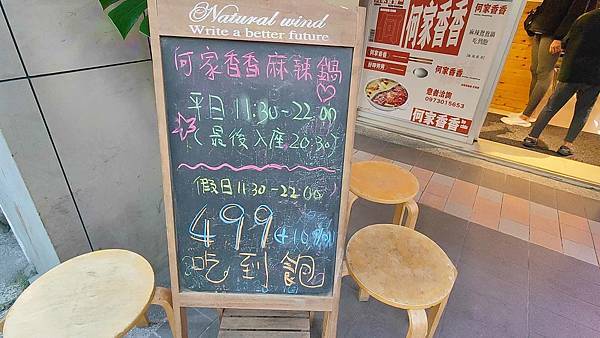 Natural wind
Write a better future
何家香香麻辣鍋
平日 11:30~22:00
(最後入座 20:30)
假日 11:30~22:00
499 +10%
吃到飽
何家香香
何家香香
何家香香
意者洽詢
0973015653
何家香香
何家香香
吃到飽